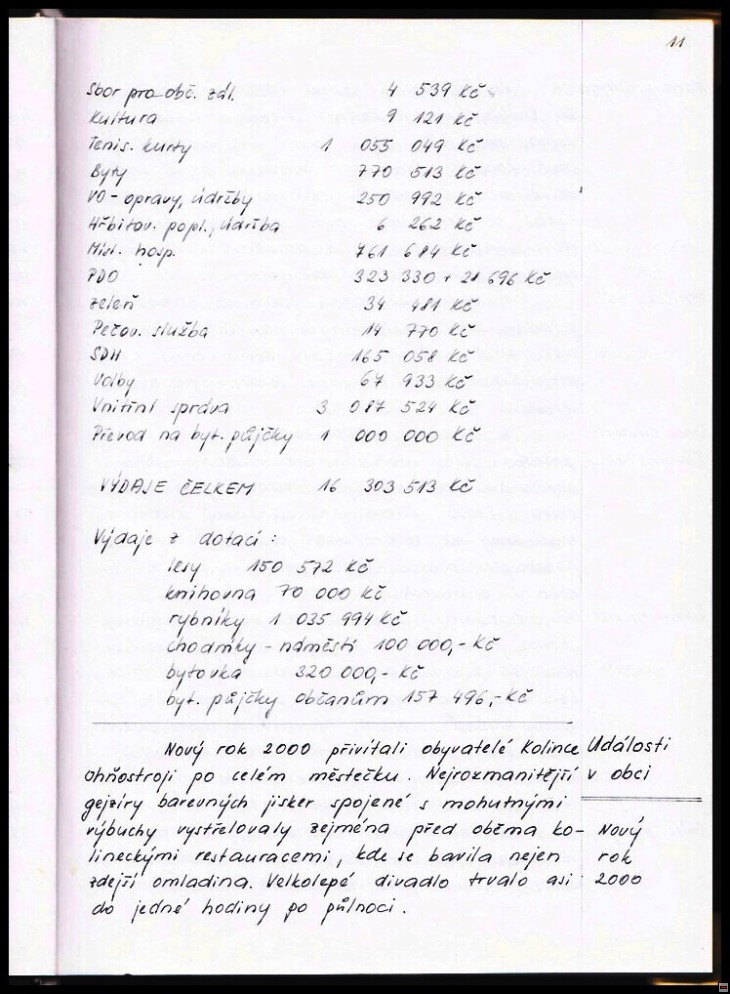 11
Sbor pro obč. zál. 4 539 Kč
Kultura 9 121 Kč
Tenis. kurty 1 055 049 Kč
Byty 770 513 Kč
VO - opravy, údržby 250 992 Kč
Hřbitov. popl., údržba 6 262 Kč
Míst. hosp. 761 684 Kč
PDO 323 330 + 21 696 Kč
zeleň 34 481 Kč
Pečov. služba 14 770 Kč
SDH 165 058 Kč
Volby 67 933 Kč
Vnitřní správa 3 087 524 Kč
Převod na byt. půjčky 1 000 000 Kč
VÝDAJE ČELKEM 16 303 513 Kč
Výdaje z dotací :
lesy 150 572 Kč
knihovna 70 000 Kč
rybníky 1 035 994 Kč
chodníky - náměstí 100 000,- Kč
bytovka 320 000,- Kč
byt. půjčky občanům 157 496,- Kč
Nový rok 2000 přivítali obyvatelé Kolince Události
ohňostroji po celém městečku. Nejrozmanitější v obci
gejzíry barevných jisker spojené s mohutnými
výbuchy vystřelovaly zejména před oběma ko- Nový
lineckými restauracemi, kde se bavila nejen rok
zdejší omladina. Velkolepé divadlo trvalo asi 2000
do jedné hodiny po půlnoci.